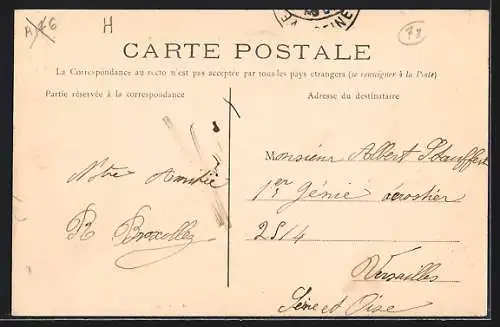 A 76
H
78
CARTE POSTALE
La Correspondance au recto n'est pas acceptée par tous les pays étrangers (se renseigner à la Poste)
Partie réservée à la correspondance
Adresse du destinataire
Monsieur Albert Stauffert
1er Génie aérostier
2514
Versailles
Seine et Oise
Notre Amitié
R Broxolles